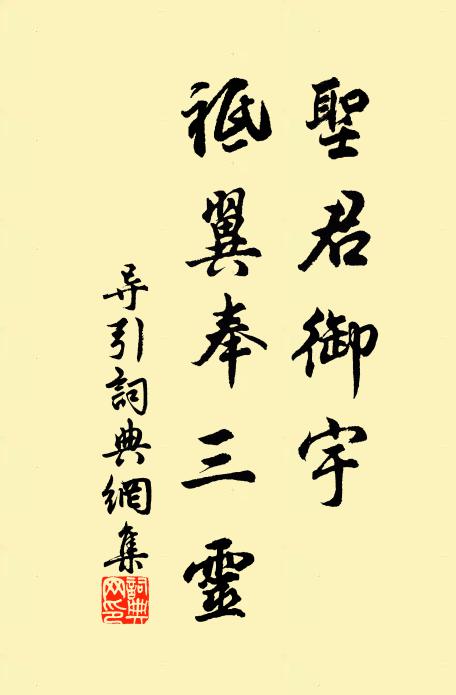 聖君御宇
祗翼奉三靈
导引詞典網集
詞典网印